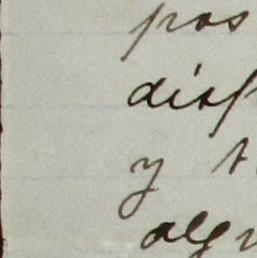 pos
disp
y t
algu